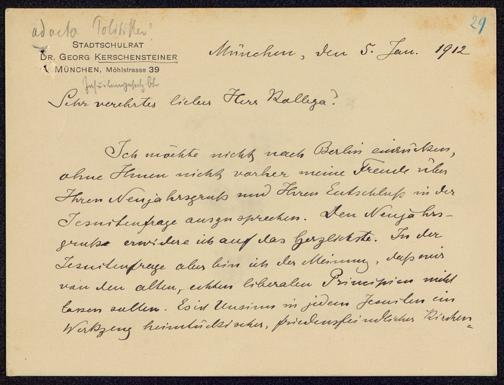 ad acta Politiker!
29
STADTSCHULRAT
DR. GEORG KERSCHENSTEINER
MÜNCHEN, Möhlstrasse 39
München, den 5. Jan. 1912
Jesuitengesetz btr.
Sehr verehrter lieber Herr Kollega!
Ich möchte nicht nach Berlin einrücken,
ohne Ihnen nicht vorher meine Freude über
Ihren Neujahrsgruß und Ihren Entschluß in der
Jesuitenfrage auszusprechen. Den Neujahrs-
gruß erwidere ich auf das Herzlichste. In der
Jesuitenfrage aber bin ich der Meinung, daß wir
von den alten, echten liberalen Principien nicht
lassen sollten. Es ist Unsinn in jedem Jesuiten ein
Werkzeug heimtückischer, friedensfeindlicher Kirchen-